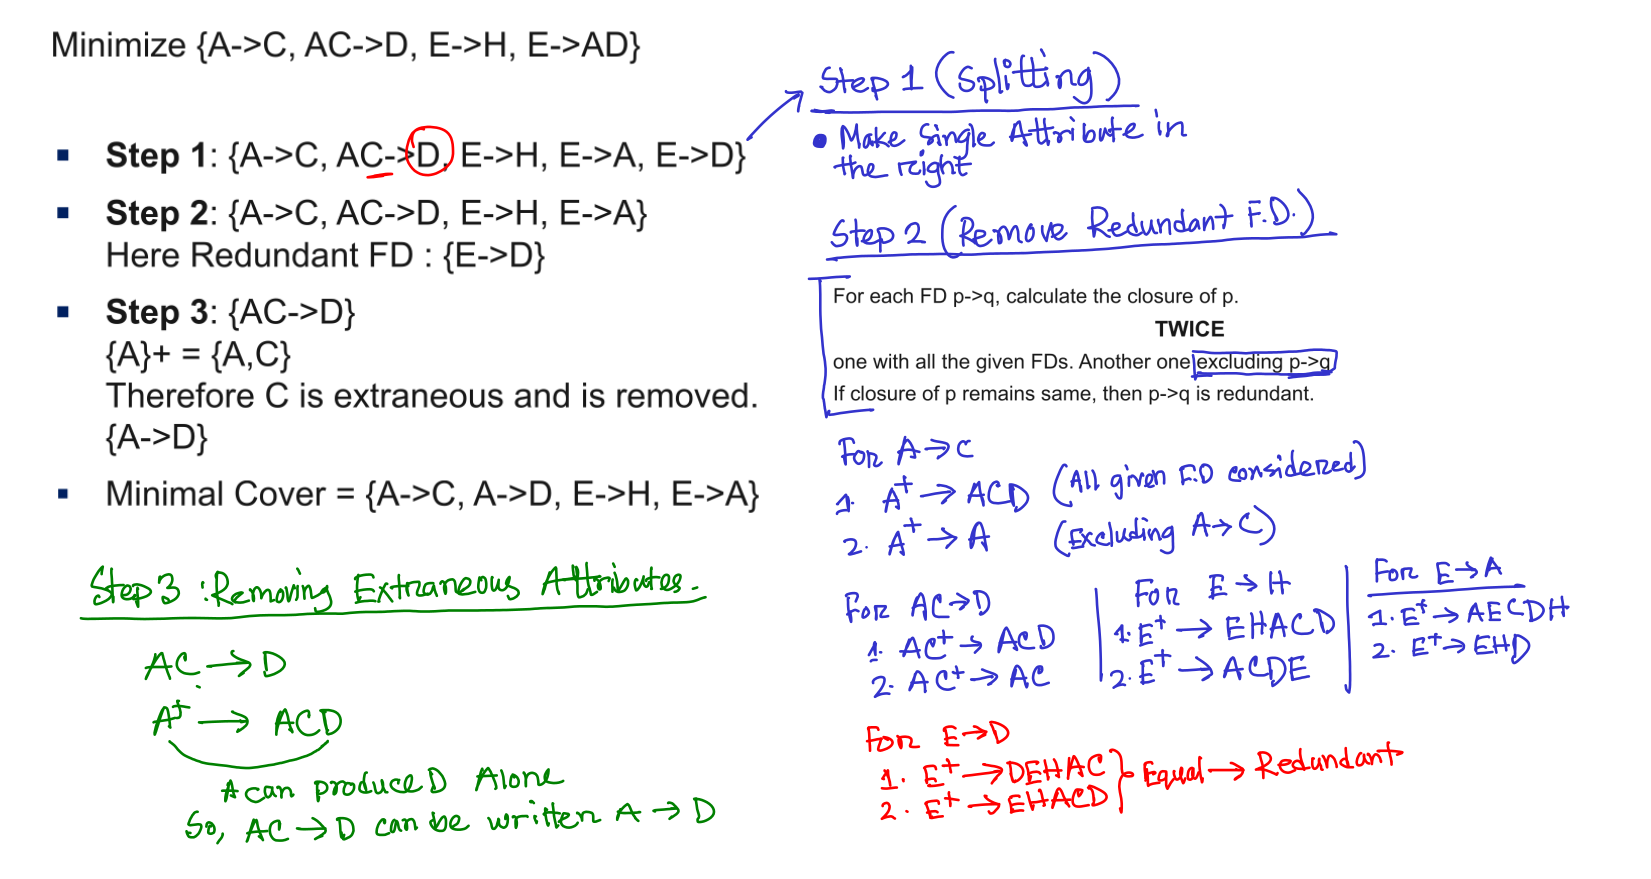 Minimize {A->C, AC->D, E->H, E->AD}
▪ Step 1: {A->C, AC->D, E->H, E->A, E->D}
▪ Step 2: {A->C, AC->D, E->H, E->A}
Here Redundant FD : {E->D}
▪ Step 3: {AC->D}
{A}+ = {A,C}
Therefore C is extraneous and is removed.
{A->D}
▪ Minimal Cover = {A->C, A->D, E->H, E->A}
Step 3 : Removing Extraneous Attributes.
AC → D
A⁺ → ACD
A can produce D Alone
So, AC → D can be written A → D
Step 1 (Splitting)
• Make Single Attribute in
the right
Step 2 (Remove Redundant F.D.)
For each FD p->q, calculate the closure of p.
TWICE
one with all the given FDs. Another one excluding p->q
If closure of p remains same, then p->q is redundant.
For A → C
1. A⁺ → ACD (All given F.D considered)
2. A⁺ → A (Excluding A → C)
For AC → D
1. AC⁺ → ACD
2. AC⁺ → AC
For E → H
1. E⁺ → EHACD
2. E⁺ → ACDE
For E → A
1. E⁺ → AECDH
2. E⁺ → EHD
For E → D
1. E⁺ → DEHAC
2. E⁺ → EHACD
Equal → Redundant